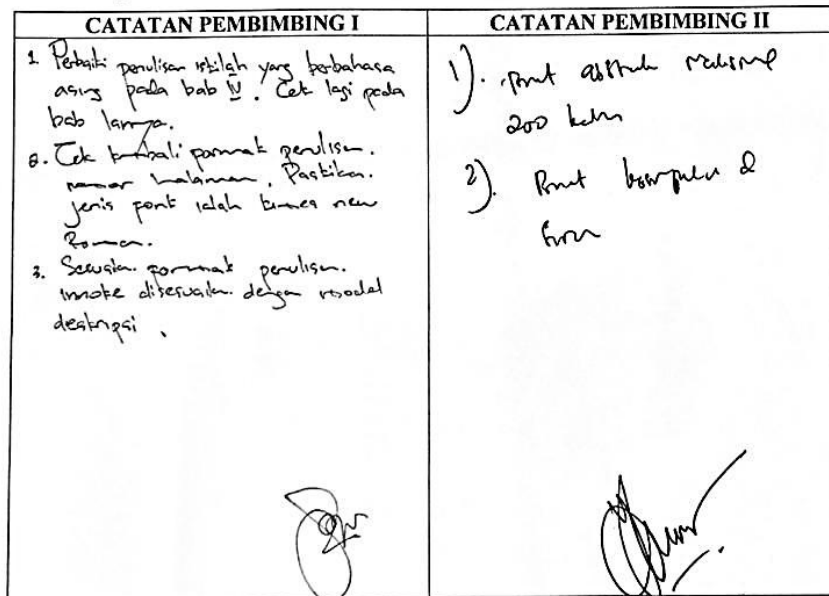 CATATAN PEMBIMBING I
1 Perbaiki penulisan istilah yang berbahasa
asing pada bab IV. Cek lagi pada
bab lainnya.
2. Cek kembali format penulisan.
nomor halaman. Pastikan.
jenis font ialah times new
Roman.
3. Sesuaikan format penulisan.
disesuaikan dengan model
deskripsi.
CATATAN PEMBIMBING II
1). Buat abstrak maksimal
200 kata
2). Buat kesimpulan &
Saran